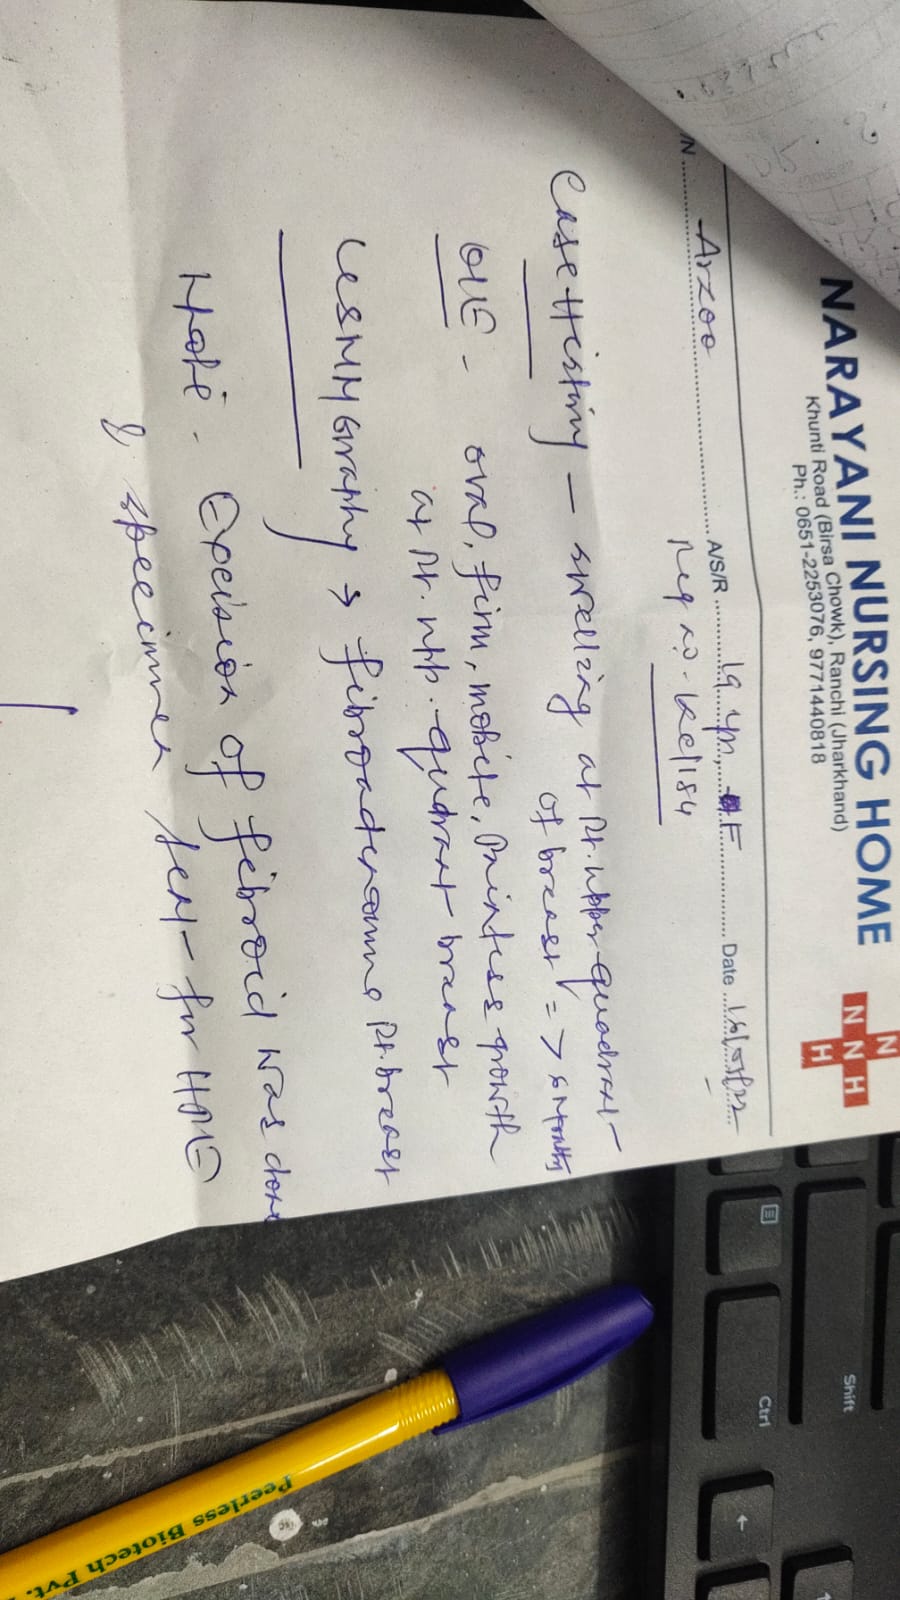 NARAYANI NURSING HOME
Khunti Road (Birsa Chowk), Ranchi (Jharkhand)
Ph.: 0651-2253076, 9771440818
N
N N H
H
/N ......... Arzoo ......... A/S/R ......... 19 yr, F ......... Date .........
Reg no -
Case History - swelling at Rt. upper quadrant
of breast => 6 months
O/E - oval, firm, mobile, painless growth
at Rt. upp. quadrant breast
USMMGraphy → fibroadenoma Rt. breast
Note - Excision of fibroid was done
& specimen sent for HPE
Shift
Ctrl
Peerless Biotech Pvt.